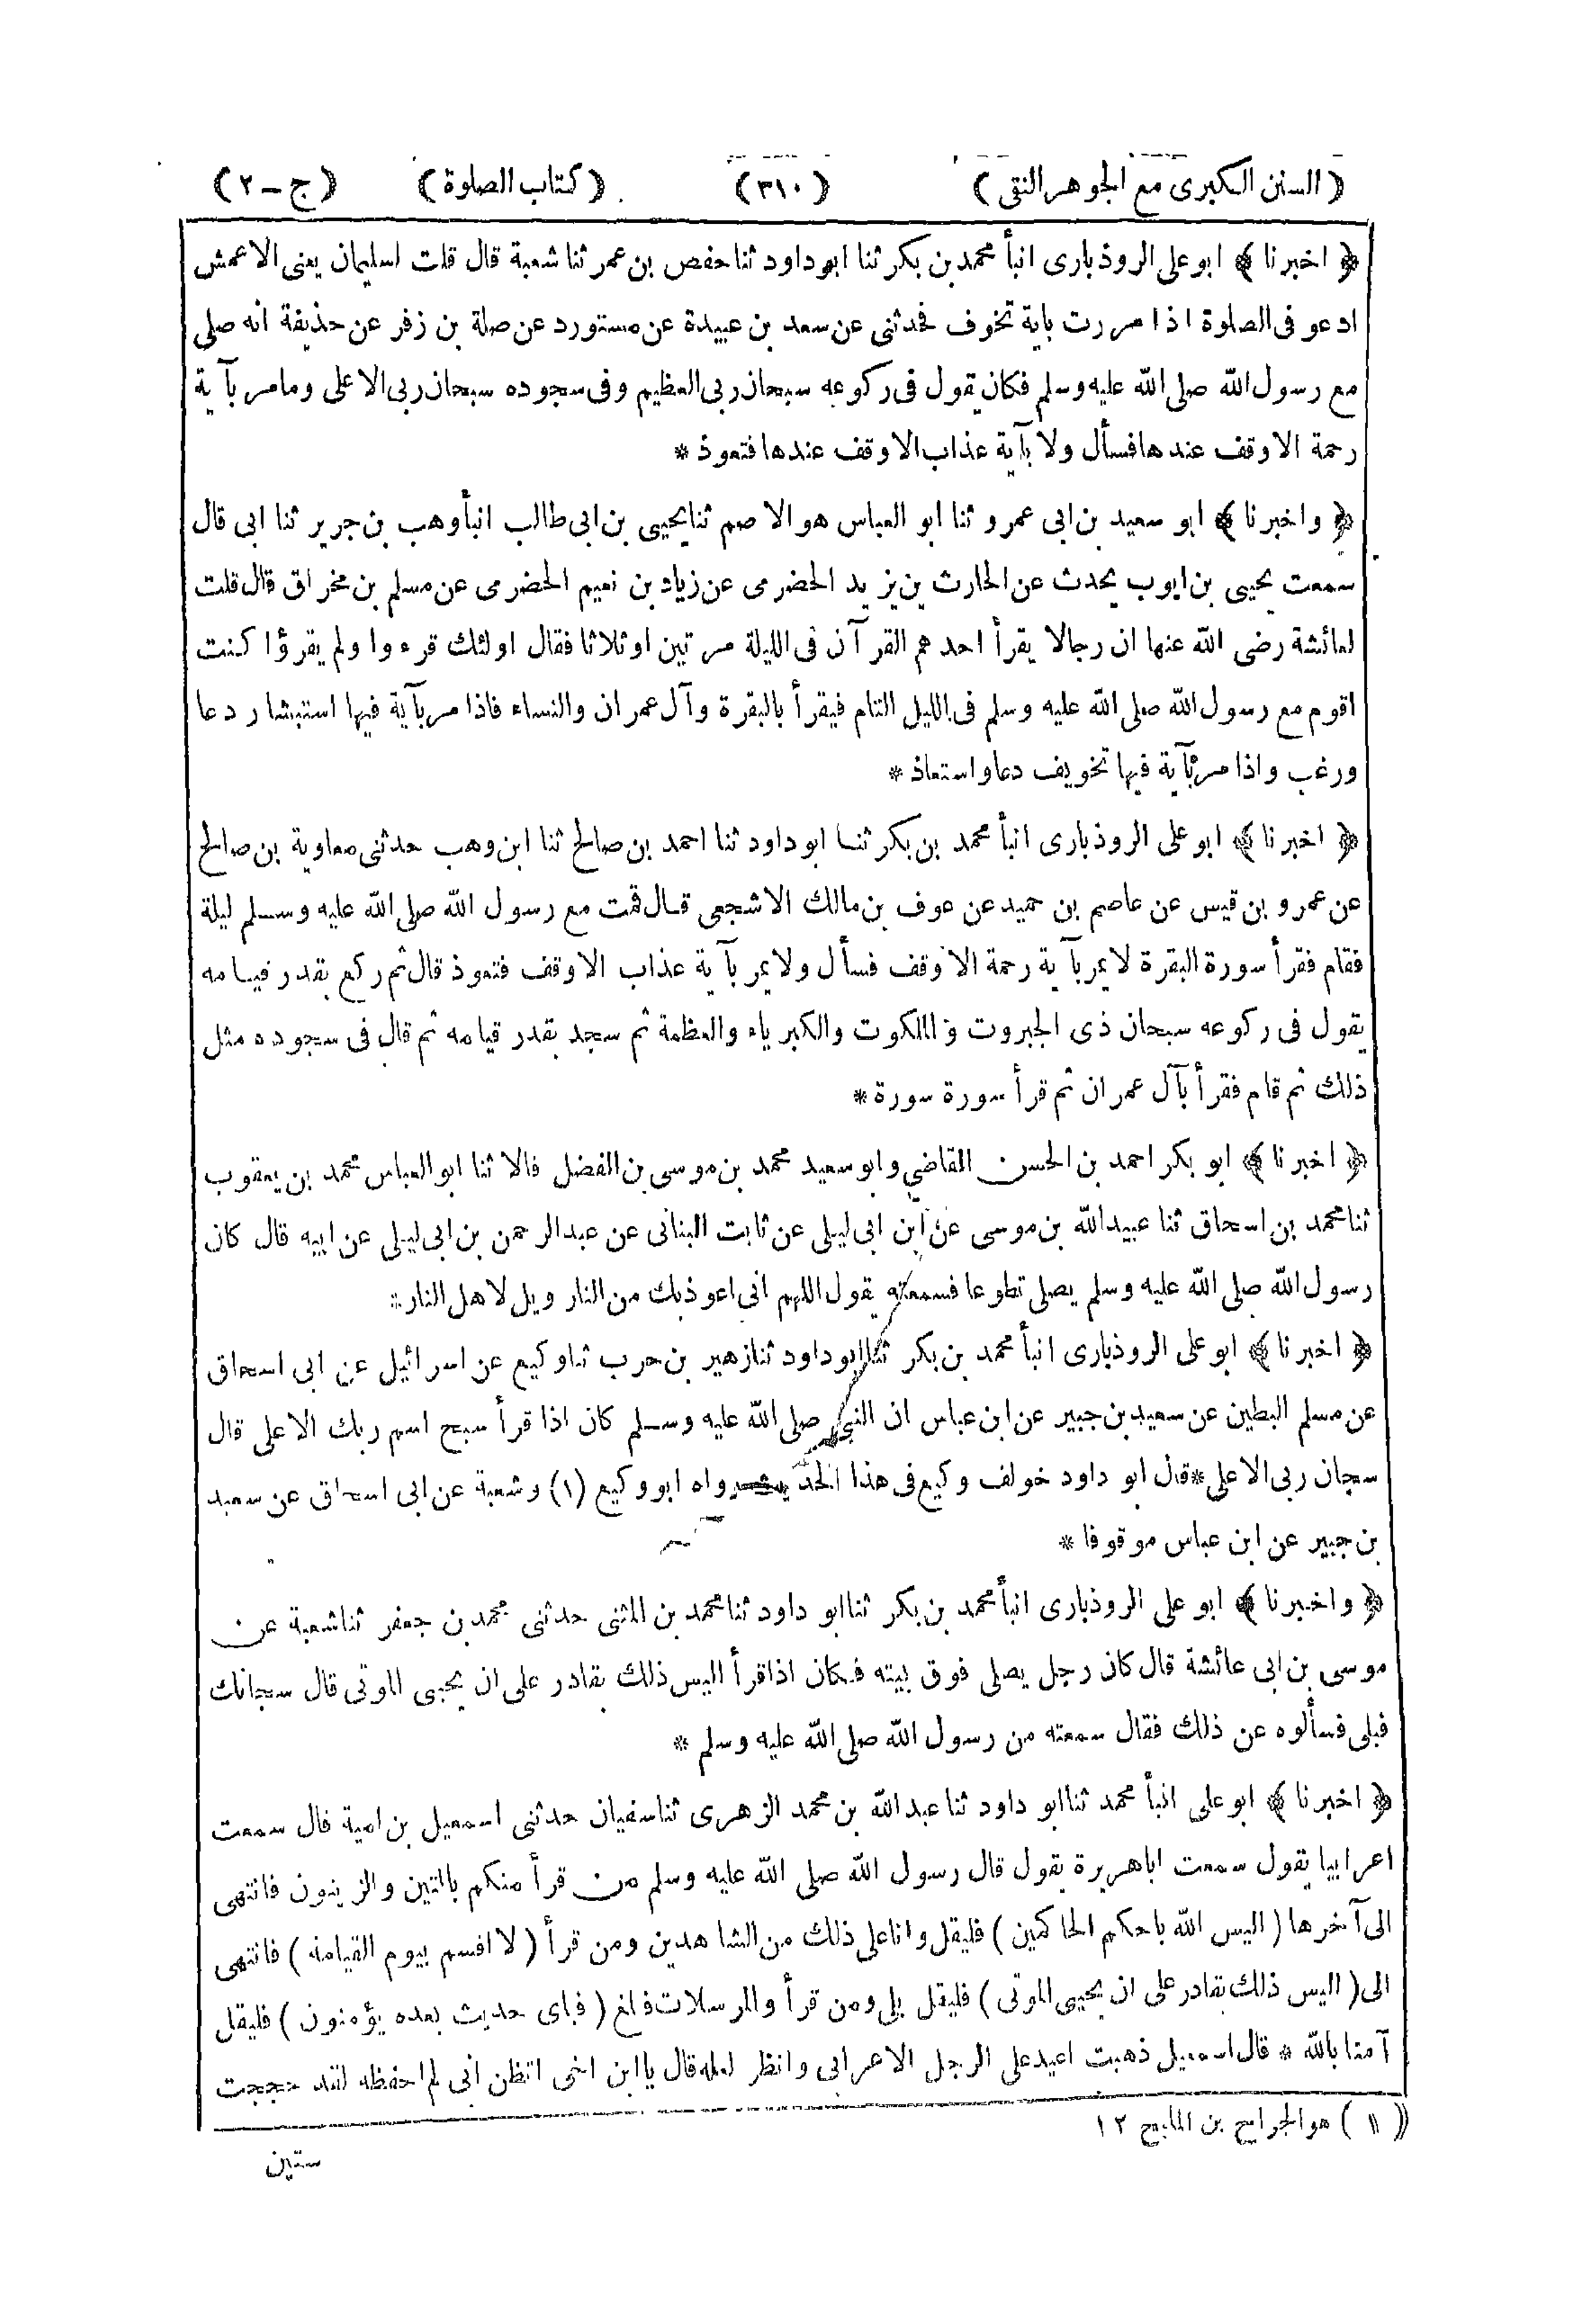 ( السنن الكبرى مع الجوهر النقى ) (٣١٠) ( كتاب الصلوة ) ( ج - ٢ )
﴿ اخبرنا ﴾ ابو على الروذبارى انبأ محمد بن بكر ثنا ابو داود ثنا حفص بن عمر ثنا شعبة قال قلت لسليمان يعنى الاعمش
ادعو فى الصلوة اذا مررت باية تخوف فحدثنى عن سعد بن عبيدة عن مستورد عن صلة بن زفر عن حذيفة انه صلى
مع رسول الله صلى الله عليه وسلم فكان يقول فى ركوعه سبحان ربى العظيم وفى سجوده سبحان ربى الاعلى وما مر بآية
رحمة الا وقف عندها فسأل ولا بآية عذاب الا وقف عندها فتعوذ *
﴿ واخبرنا ﴾ ابو سعيد بن ابى عمرو ثنا ابو العباس هو الاصم ثنا يحيى بن ابى طالب انبأ وهب بن جرير ثنا ابى قال
سمعت يحيى بن ايوب يحدث عن الحارث بن يزيد الحضرمى عن زياد بن نعيم الحضرمى عن مسلم بن مخراق قال قلت
لعائشة رضى الله عنها ان رجالا يقرأ احدهم القرآن فى الليلة مرتين او ثلاثا فقال اولئك قرءوا ولم يقرؤا كنت
اقوم مع رسول الله صلى الله عليه وسلم فى الليل التام فيقرأ بالبقرة وآل عمران والنساء فاذا مر بآية فيها استبشار دعا
ورغب واذا مر بآية فيها تخويف دعا واستعاذ *
﴿ اخبرنا ﴾ ابو على الروذبارى انبأ محمد بن بكر ثنا ابو داود ثنا احمد بن صالح ثنا ابن وهب حدثنى معاوية بن صالح
عن عمرو بن قيس عن عاصم بن حميد عن عوف بن مالك الاشجعى قال قمت مع رسول الله صلى الله عليه وسلم ليلة
فقام فقرأ سورة البقرة لا يمر بآية رحمة الا وقف فسأل ولا يمر بآية عذاب الا وقف فتعوذ قال ثم ركع بقدر قيامه
يقول فى ركوعه سبحان ذى الجبروت والملكوت والكبرياء والعظمة ثم سجد بقدر قيامه ثم قال فى سجوده مثل
ذلك ثم قام فقرأ بآل عمران ثم قرأ سورة سورة *
﴿ اخبرنا ﴾ ابو بكر احمد بن الحسن القاضي وابو سعيد محمد بن موسى بن الفضل قالا ثنا ابو العباس محمد بن يعقوب
ثنا محمد بن اسحاق ثنا عبيد الله بن موسى عن ابن ابى ليلى عن ثابت البنانى عن عبد الرحمن بن ابى ليلى عن ابيه قال كان
رسول الله صلى الله عليه وسلم يصلى تطوعا فسمعته يقول اللهم انى اعوذ بك من النار ويل لاهل النار *
﴿ اخبرنا ﴾ ابو على الروذبارى انبأ محمد بن بكر ثنا ابو داود ثنا زهير بن حرب ثنا وكيع عن اسرائيل عن ابى اسحاق
عن مسلم البطين عن سعيد بن جبير عن ابن عباس ان النبى صلى الله عليه وسلم كان اذا قرأ سبح اسم ربك الاعلى قال
سبحان ربى الاعلى * قال ابو داود خولف وكيع فى هذا الحديث رواه ابو وكيع (١) وشعبة عن ابى اسحاق عن سعيد
بن جبير عن ابن عباس موقوفا *
﴿ واخبرنا ﴾ ابو على الروذبارى انبأ محمد بن بكر ثنا ابو داود ثنا محمد بن المثنى حدثنى محمد بن جعفر ثنا شعبة عن
موسى بن ابى عائشة قال كان رجل يصلى فوق بيته فكان اذا قرأ اليس ذلك بقادر على ان يحيى الموتى قال سبحانك
فبلى فسألوه عن ذلك فقال سمعته من رسول الله صلى الله عليه وسلم *
﴿ اخبرنا ﴾ ابو على انبأ محمد ثنا ابو داود ثنا عبد الله بن محمد الزهرى ثنا سفيان حدثنى اسمعيل بن امية قال سمعت
اعرابيا يقول سمعت اباهريرة يقول قال رسول الله صلى الله عليه وسلم من قرأ منكم بالتين والزيتون فانتهى
الى آخرها ( اليس الله باحكم الحاكمين ) فليقل وانا على ذلك من الشاهدين ومن قرأ ( لا اقسم بيوم القيامة ) فانتهى
الى ( اليس ذلك بقادر على ان يحيى الموتى ) فليقل بلى ومن قرأ والمرسلات فبلغ ( فباى حديث بعده يؤمنون ) فليقل
آمنا بالله * قال اسمعيل ذهبت اعيد على الرجل الاعرابى وانظر لعله قال يا ابن اخى اتظن انى لم احفظه لقد حججت
( ١ ) هو الجراح بن المليح ١٢
ستين